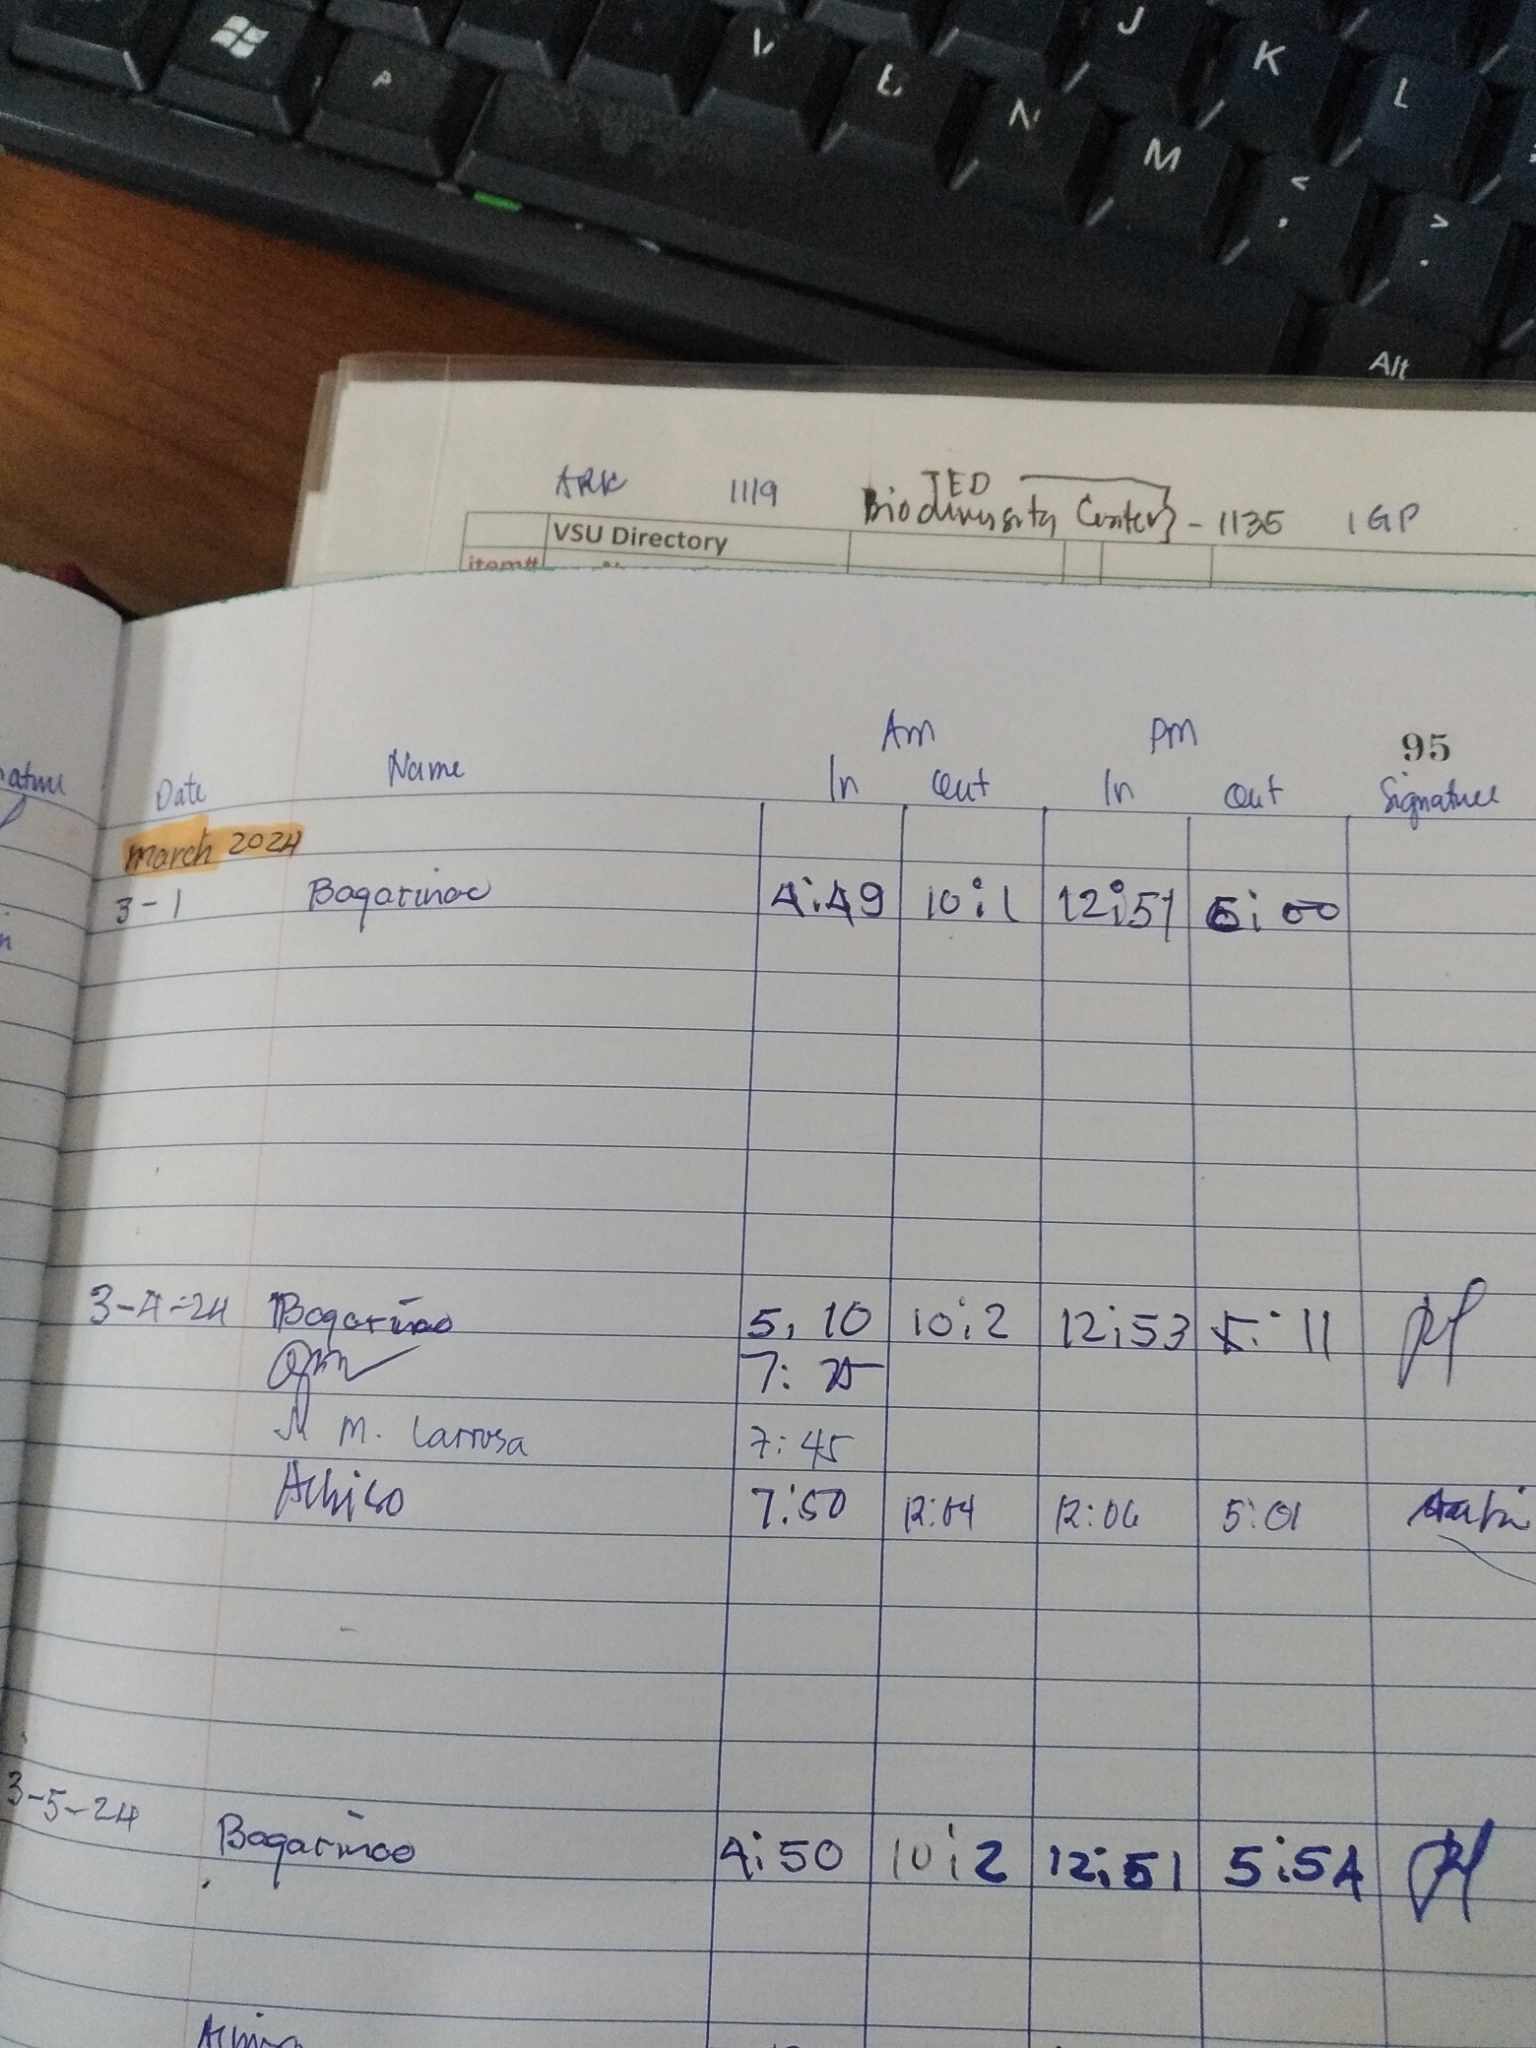 V
B
N
M
J
K
L
<
,
>
.
Alt
ARK 1119 TED
Biodiversity Center} - 1135 IGP
VSU Directory
item#
95
Am Pm
ature Date Name In Out In Out Signature
march 2024
3-1 Bagarinao 4:49 10:1 12:51 5:00
3-4-24 Bagarinao 5:10 10:2 12:53 5:11
7:25
M. Larrosa 7:45
7:50 12:04 12:06 5:01
3-5-24 Bagarinao 4:50 10:2 12:51 5:54